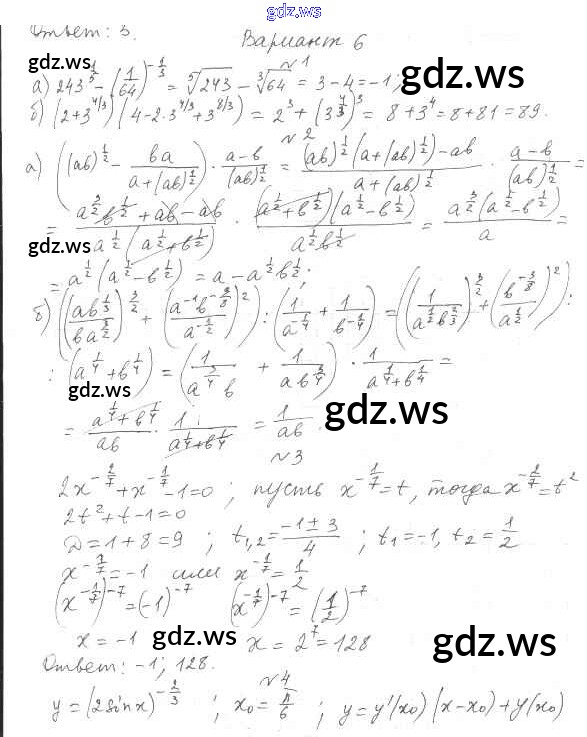 gdz.ws
Ответ: 3.
Вариант 6
gdz.ws
№1
а) 243^{1/5} - (1/64)^{-1/3} = ⁵√243 - ³√64 = 3 - 4 = -1;
gdz.ws
б) (2+3^{4/3})(4-2·3^{4/3}+3^{8/3}) = 2³ + (3^{4/3})³ = 8+3⁴ = 8+81 = 89.
№2
а) ((ab)^{1/2} - ba/(a+(ab)^{1/2})) · (a-b)/(ab)^{1/2} = ((ab)^{1/2}(a+(ab)^{1/2})-ab)/(a+(ab)^{1/2}) · (a-b)/(ab)^{1/2} =
= (a^{3/2}b^{1/2}+ab-ab)/(a^{1/2}(a^{1/2}+b^{1/2})) · (a^{1/2}+b^{1/2})(a^{1/2}-b^{1/2})/(a^{1/2}b^{1/2}) = a^{3/2}(a^{1/2}-b^{1/2})/a =
gdz.ws
= a^{1/2}(a^{1/2}-b^{1/2}) = a-a^{1/2}b^{1/2};
б) ((ab^{1/3}/(ba^{3/2}))^{3/2} + (a^{-1}b^{-3/8}/a^{-1/2})²) : (1/a^{-1/4} + 1/b^{-1/4}) = ((1/(a^{1/2}b^{2/3}))^{3/2} + (b^{-3/8}/a^{1/2})²) :
: (a^{1/4}+b^{1/4}) = (1/(a^{3/4}b) + 1/(ab^{3/4})) · 1/(a^{1/4}+b^{1/4}) =
gdz.ws
= (a^{1/4}+b^{1/4})/ab · 1/(a^{1/4}+b^{1/4}) = 1/ab.
gdz.ws
№3
2x^{-2/7}+x^{-1/7}-1=0; пусть x^{-1/7}=t, тогда x^{-2/7}=t²
gdz.ws
gdz.ws
2t²+t-1=0
D=1+8=9; t_{1,2}=(-1±3)/4; t₁=-1, t₂=1/2
x^{-1/7}=-1 или x^{-1/7}=1/2
(x^{-1/7})^{-7}=(-1)^{-7} (x^{-1/7})^{-7}=(1/2)^{-7}
x=-1 gdz.ws x=2⁷=128
gdz.ws
Ответ: -1; 128.
№4
y=(2sinx)^{-2/3}; x₀=π/6; y=y'(x₀)(x-x₀)+y(x₀)
gdz.ws